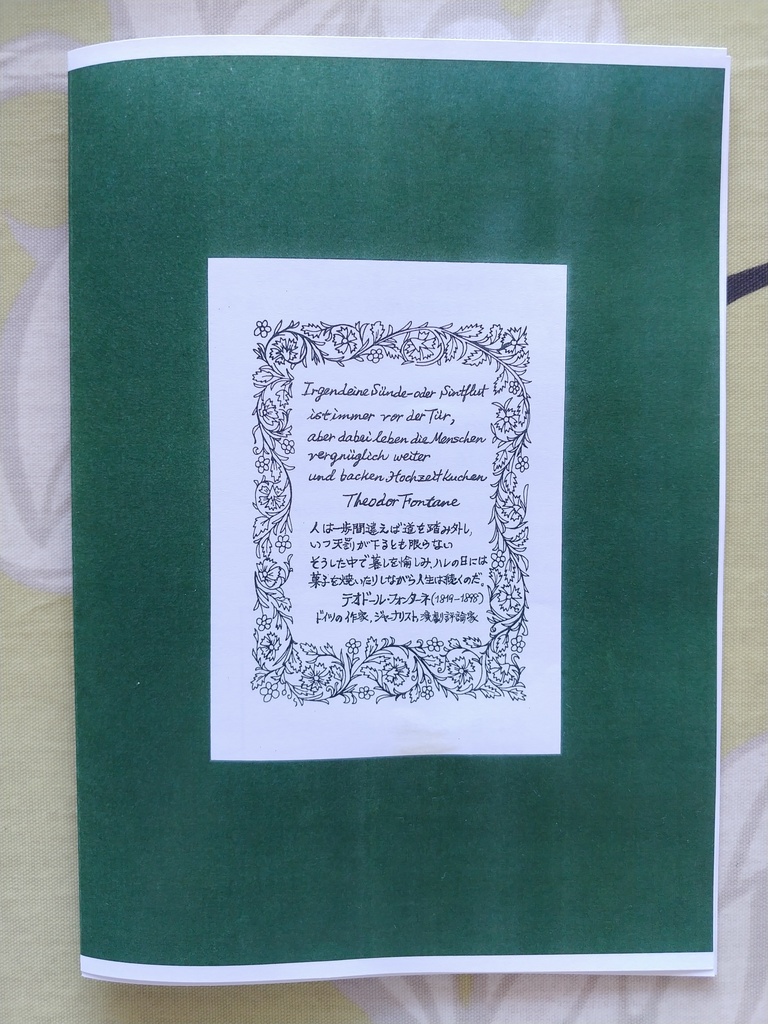 Irgendeine Sünde- oder Sintflut
ist immer vor der Tür,
aber dabei leben die Menschen
vergnüglich weiter
und backen Hochzeitkuchen
Theodor Fontane
人は一歩間違えば道を踏み外し,
いつ天罰が下るとも限らない
そうした中で暮しを愉しみ、ハレの日には
菓子を焼いたりしながら人生は続くのだ。
テオドール・フォンターネ(1819-1898)
ドイツの作家、ジャーナリスト、演劇評論家